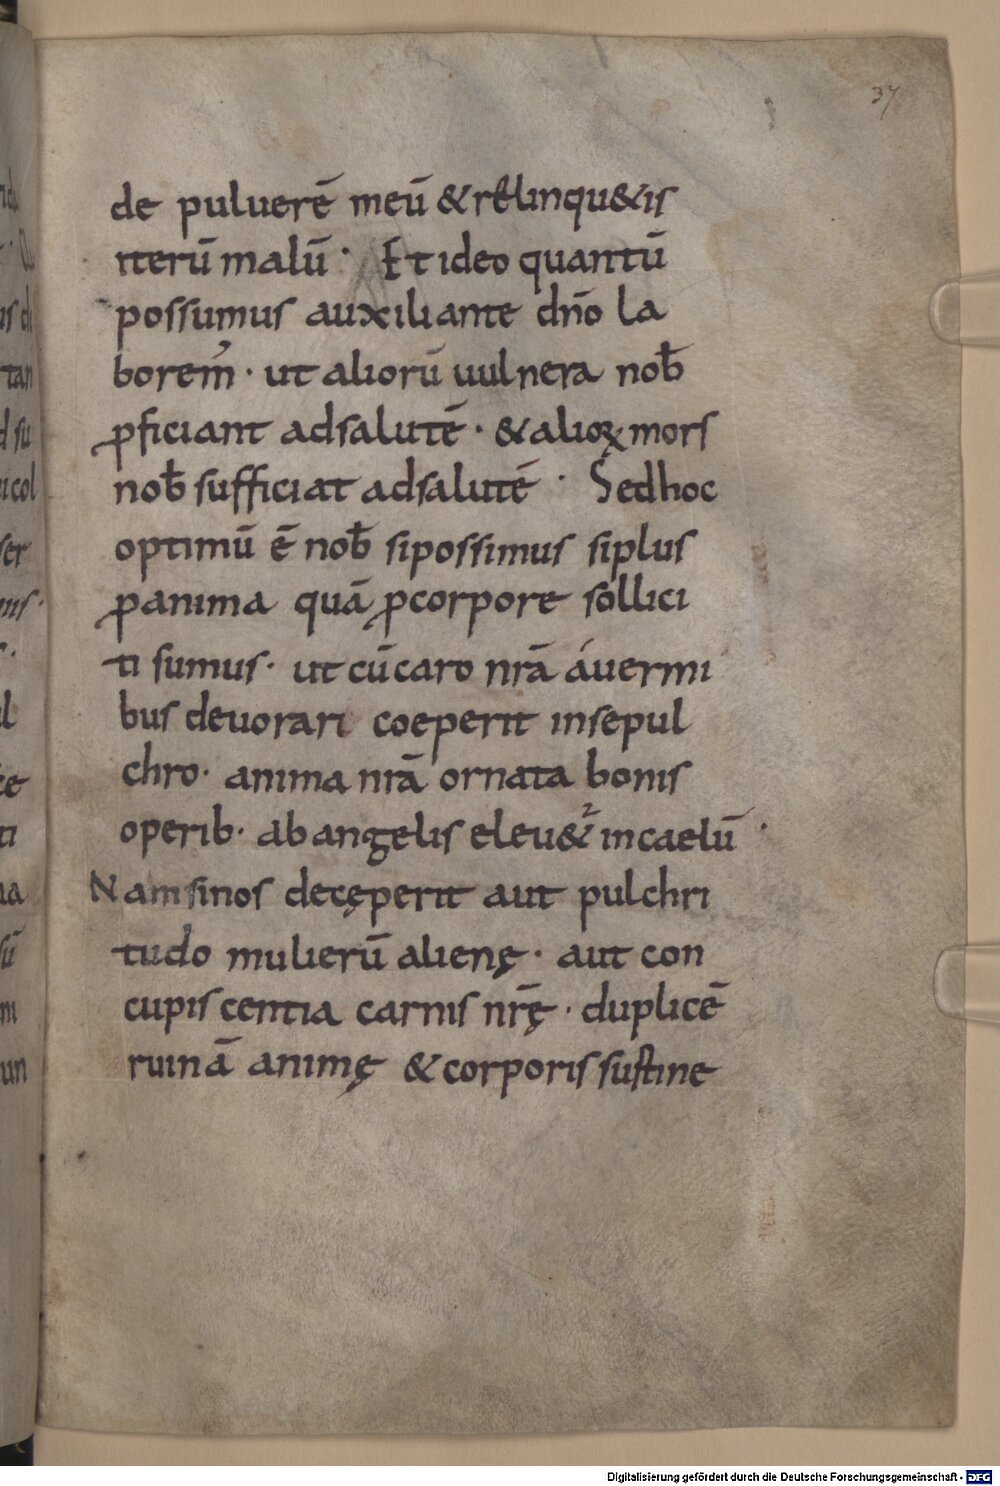 37
de puluerē meū & relinqu&is
iterū malū · Et ideo quantū
possumus auxiliante dn̄o la
borem̉ · ut aliorū uulnera nob̄
ꝓficiant adsalutē · & alioꝝ mors
nob̄ sufficiat adsalutē · Sedhoc
optimū ē nob̄ sipossimus siplus
ꝓ anima quā ꝓ corpore sollici
ti sumus · ut cū caro nr̄a áuermi
bus deuorari coeperit insepul
chro · anima nr̄a ornata bonis
operib· ab angelis eleu&ᷣ in caelū ·
Nam sinos decęperit aut pulchri
tudo mulierū alienę · aut con
cupiscentia carnis nr̄ę · duplicē
ruinā animę & corporis sustine
Digitalisierung gefördert durch die Deutsche Forschungsgemeinschaft - DFG